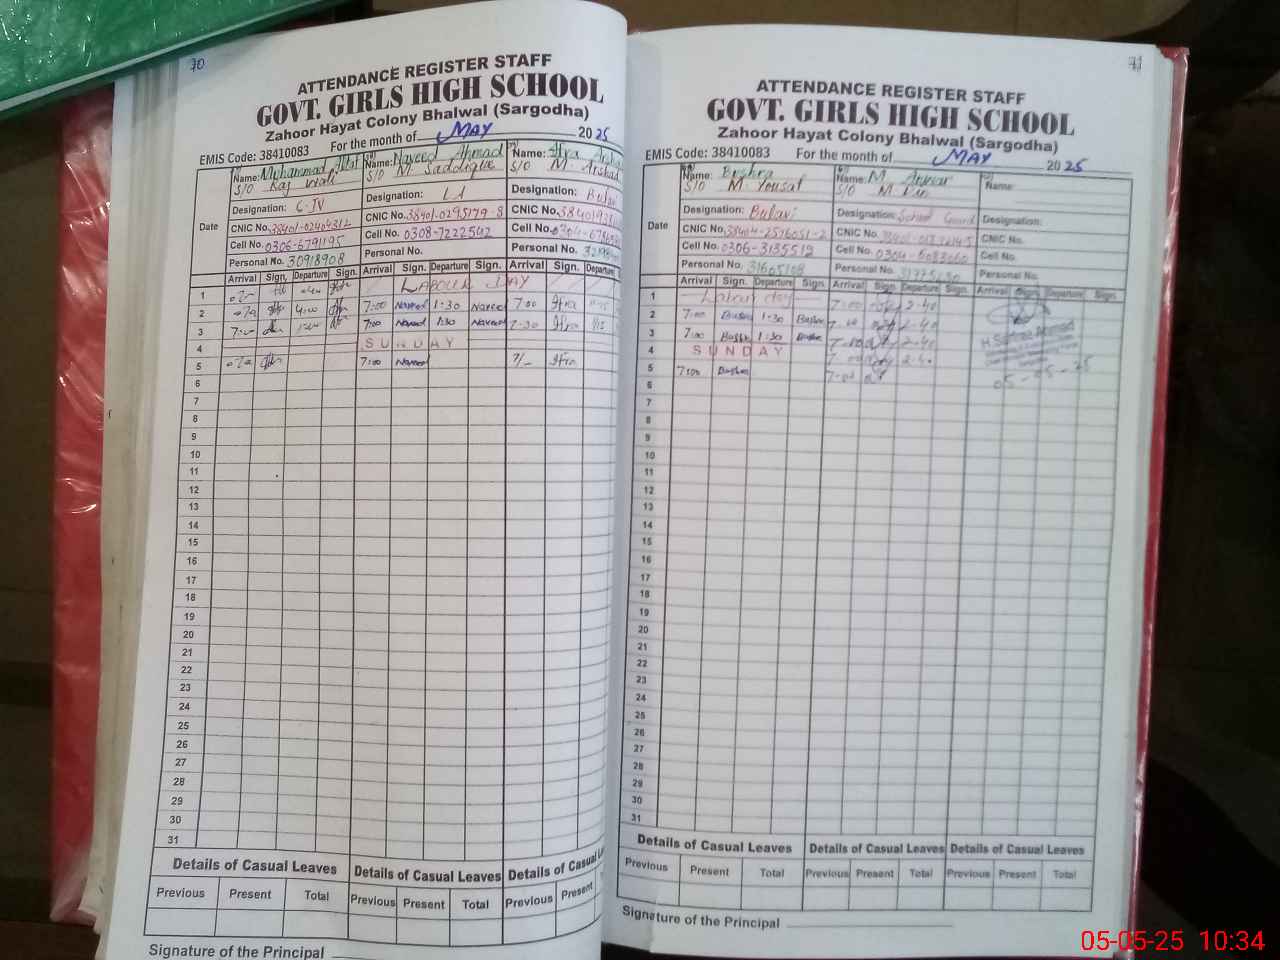 70
ATTENDANCE REGISTER STAFF
GOVT. GIRLS HIGH SCHOOL
Zahoor Hayat Colony Bhalwal (Sargodha)
EMIS Code: 38410083 For the month of MAY 2025
Name: Muhammad
S/O
Designation: C-IV
CNIC No.
Cell No. 0306-6791195
Personal No. 30918908
Name: Naveed Ahmad
S/O M. Saddique
Designation: LA
CNIC No. 38401-0295179-8
Cell No. 0308-7222542
Personal No.
Name: Ifra
S/O M. Arshad
Designation:
CNIC No.
Cell No.
Personal No.
Date
Arrival Sign. Departure Sign. Arrival Sign. Departure Sign. Arrival Sign. Departure
1 LABOUR DAY
2 4:00 7:00 Naveed 1:30 Naveed 7:00 Ifra
3 7:00 Naveed 1:30 Naveed 7:30 Ifra
4 SUNDAY
5 7:00 Naveed Ifra
6
7
8
9
10
11
12
13
14
15
16
17
18
19
20
21
22
23
24
25
26
27
28
29
30
31
Details of Casual Leaves Details of Casual Leaves Details of Casual
Previous Present Total Previous Present Total Previous Present
Signature of the Principal
71
ATTENDANCE REGISTER STAFF
GOVT. GIRLS HIGH SCHOOL
Zahoor Hayat Colony Bhalwal (Sargodha)
EMIS Code: 38410083 For the month of MAY 2025
Name: Bushra
S/O M. Yousaf
Designation: Bulavi
CNIC No. 38404-2576051-2
Cell No. 0306-3135512
Personal No. 31605108
Name: M. Anwar
S/O M. Din
Designation: School Guard
CNIC No.
Cell No. 0304-6083060
Personal No.
Name:
Designation:
CNIC No.
Cell No.
Personal No.
Date
Arrival Sign. Departure Sign. Arrival Sign. Departure Sign. Arrival Sign. Departure Sign.
1 Labour day 7:00 2-40
2 7:00 Bushra 1:30 Bushra 7-00 2-40
3 7:00 Bushra 1:30 Bushra 7-00 2-40
4 SUNDAY 7-00 2-40
5 7:00 Bushra 7-00
05-05-25
6
7
8
9
10
11
12
13
14
15
16
17
18
19
20
21
22
23
24
25
26
27
28
29
30
31
Details of Casual Leaves Details of Casual Leaves Details of Casual Leaves
Previous Present Total Previous Present Total Previous Present Total
Signature of the Principal
05-05-25 10:34